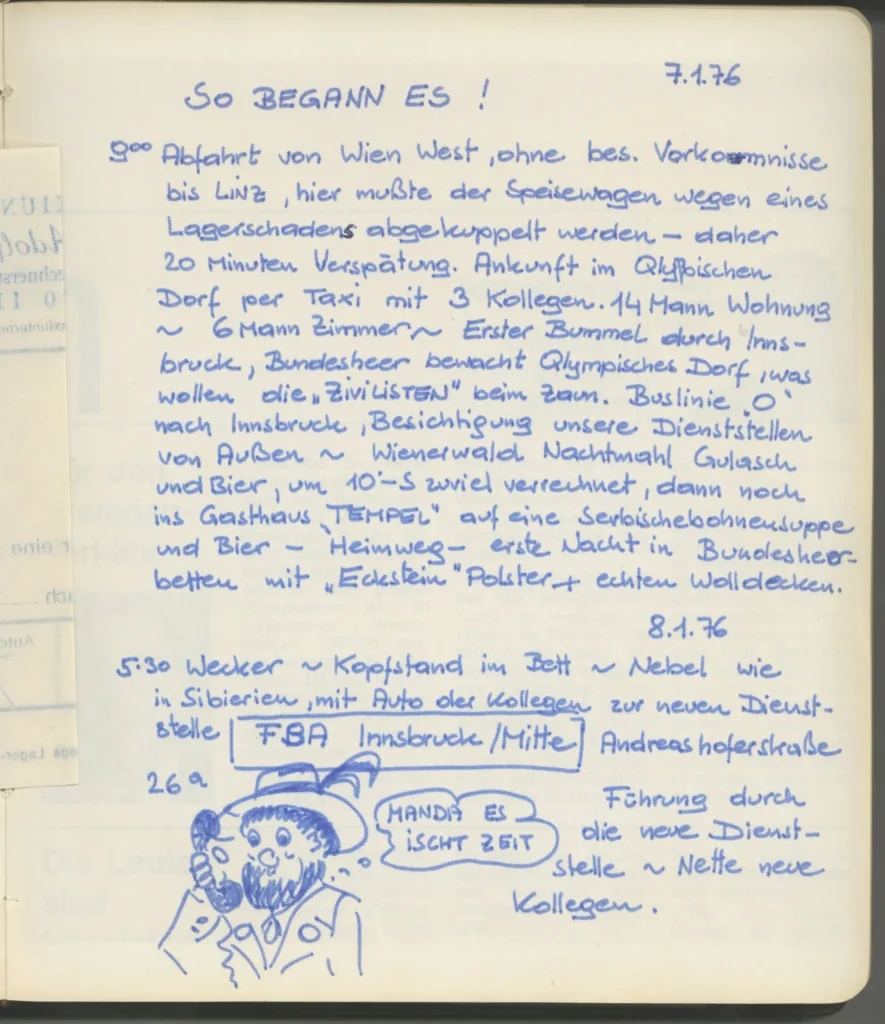 7.1.76
SO BEGANN ES !
9⁰⁰ Abfahrt von Wien West, ohne bes. Vorkommnisse
bis LiNZ, hier mußte der Speisewagen wegen eines
Lagerschadens abgekuppelt werden – daher
20 Minuten Verspätung. Ankunft im Olypischen
Dorf per Taxi mit 3 Kollegen. 14 Mann Wohnung
~ 6 Mann Zimmer ~ Erster Bummel durch Inns-
bruck, Bundesheer bewacht Olympisches Dorf, was
wollen die „ZiViLiSTEN" beim Zaun. Buslinie „O"
nach Innsbruck, Besichtigung unsere Dienststellen
von Außen ~ Wienerwald Nachtmahl Gulasch
und Bier, um 10-S zuviel verrechnet, dann noch
ins Gasthaus „TEMPEL" auf eine Serbischebohnensuppe
und Bier – Heimweg – erste Nacht in Bundesheer-
betten mit „Eckstein" Polster + echten Wolldecken.
8.1.76
5:30 Wecker ~ Kopfstand im Bett ~ Nebel wie
in Sibierien, mit Auto der Kollegen zur neuen Dienst-
stelle FBA Innsbruck/Mitte Andreashoferstraße
26a
Führung durch
die neue Dienst-
stelle ~ Nette neue
Kollegen.
MANDA ES
iSCHT ZEiT